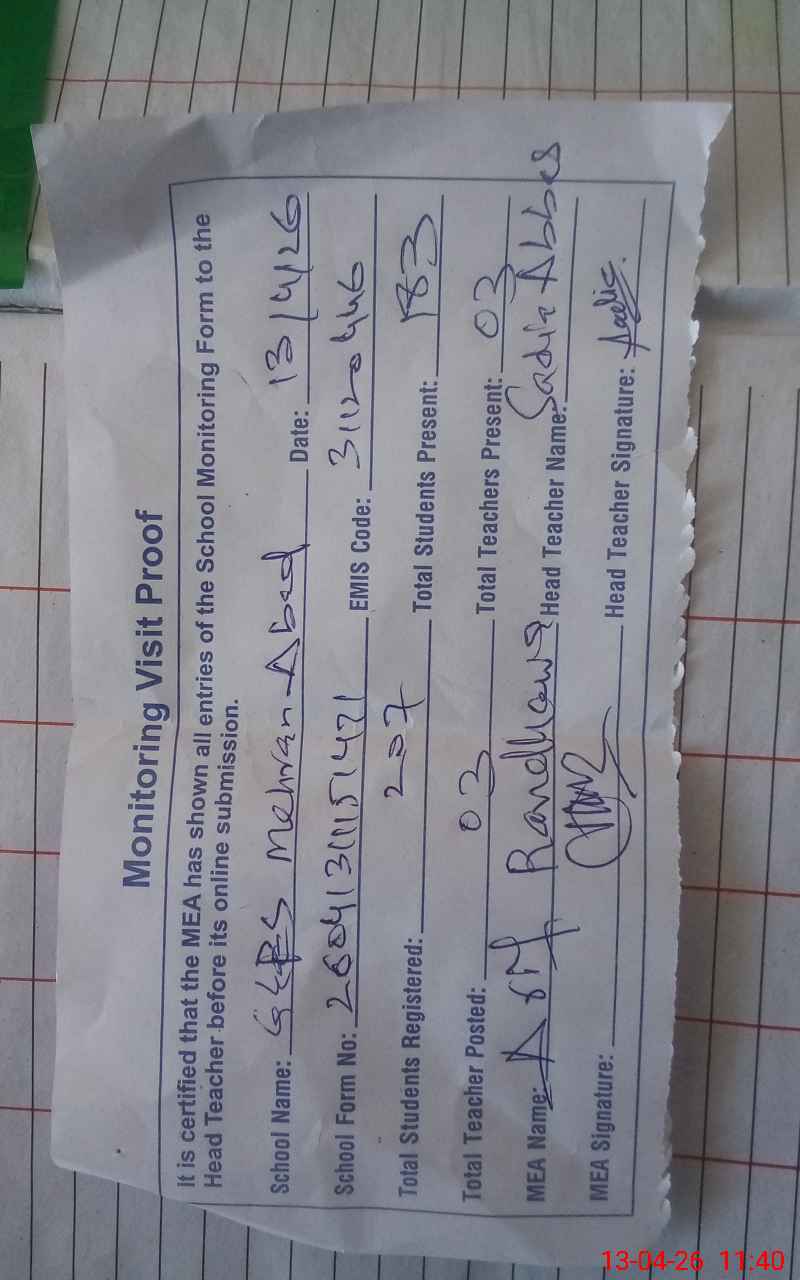 Monitoring Visit Proof
It is certified that the MEA has shown all entries of the School Monitoring Form to the
Head Teacher before its online submission.
School Name: GGPS Mehran Abad Date: 13/4/26
School Form No: 26041311151471 EMIS Code: 31120446
Total Students Registered: 207 Total Students Present: 183
Total Teacher Posted: 03 Total Teachers Present: 03
MEA Name: Asif Randhawa Head Teacher Name: Sadia Abbas
MEA Signature: Head Teacher Signature:
13-04-26 11:40